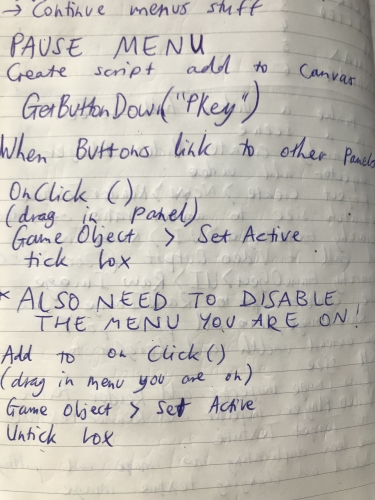 → Continue menus stuff
PAUSE MENU
Create script add to Canvas
GetButtonDown("PKey")
When Buttons link to other Panels
OnClick ()
(drag in panel)
Game Object > Set Active
tick box
* ALSO NEED TO DISABLE
THE MENU YOU ARE ON!
Add to on Click()
(drag in menu you are on)
Game Object > Set Active
Untick box